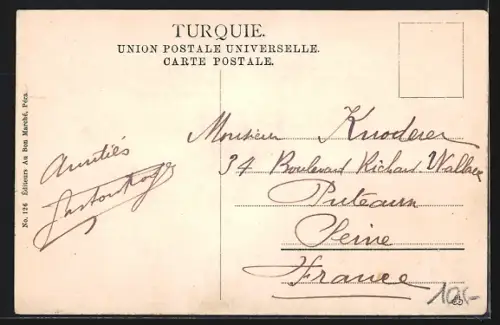 TURQUIE.
UNION POSTALE UNIVERSELLE.
CARTE POSTALE.
No. 126 Éditeurs Au Bon Marché, Péra.
Amitiés
Monsieur Knoderer
34 Boulevard Richard Wallace
Puteaux
Seine
France